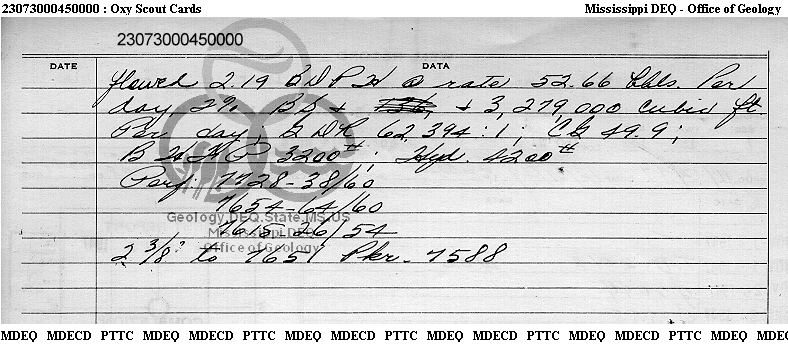 23073000450000 : Oxy Scout Cards
Mississippi DEQ - Office of Geology
23073000450000
DATE
DATA
flowed 2.19 BDPH @ rate 52.66 bbls. Per
day, 2% BS & + 3,279,000 cubic ft.
Per day, GOR 62,394:1; CG 49.9;
BHFP 3200#; Hyd. 4200#
Perf: 7728-38/60
7654-64/60
7615-26/54
2 3/8" to 7651 Pkr- 7588
Geology.DEQ.State.MS.US
Mississippi DEQ
Office of Geology
MDEQ MDECD PTTC MDEQ MDECD PTTC MDEQ MDECD PTTC MDEQ MDECD PTTC MDEQ MDECD PTTC MDEQ MDEC